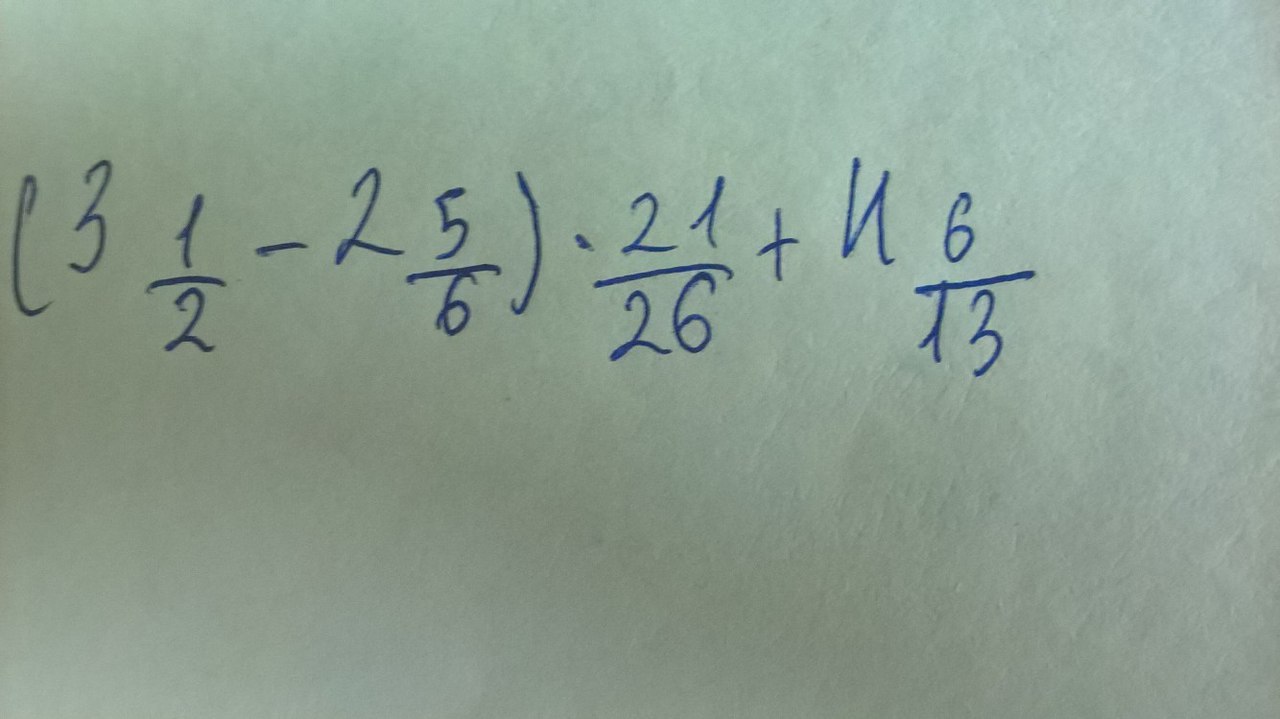 (3 1/2 - 2 5/6) · 21/26 + 4 6/13